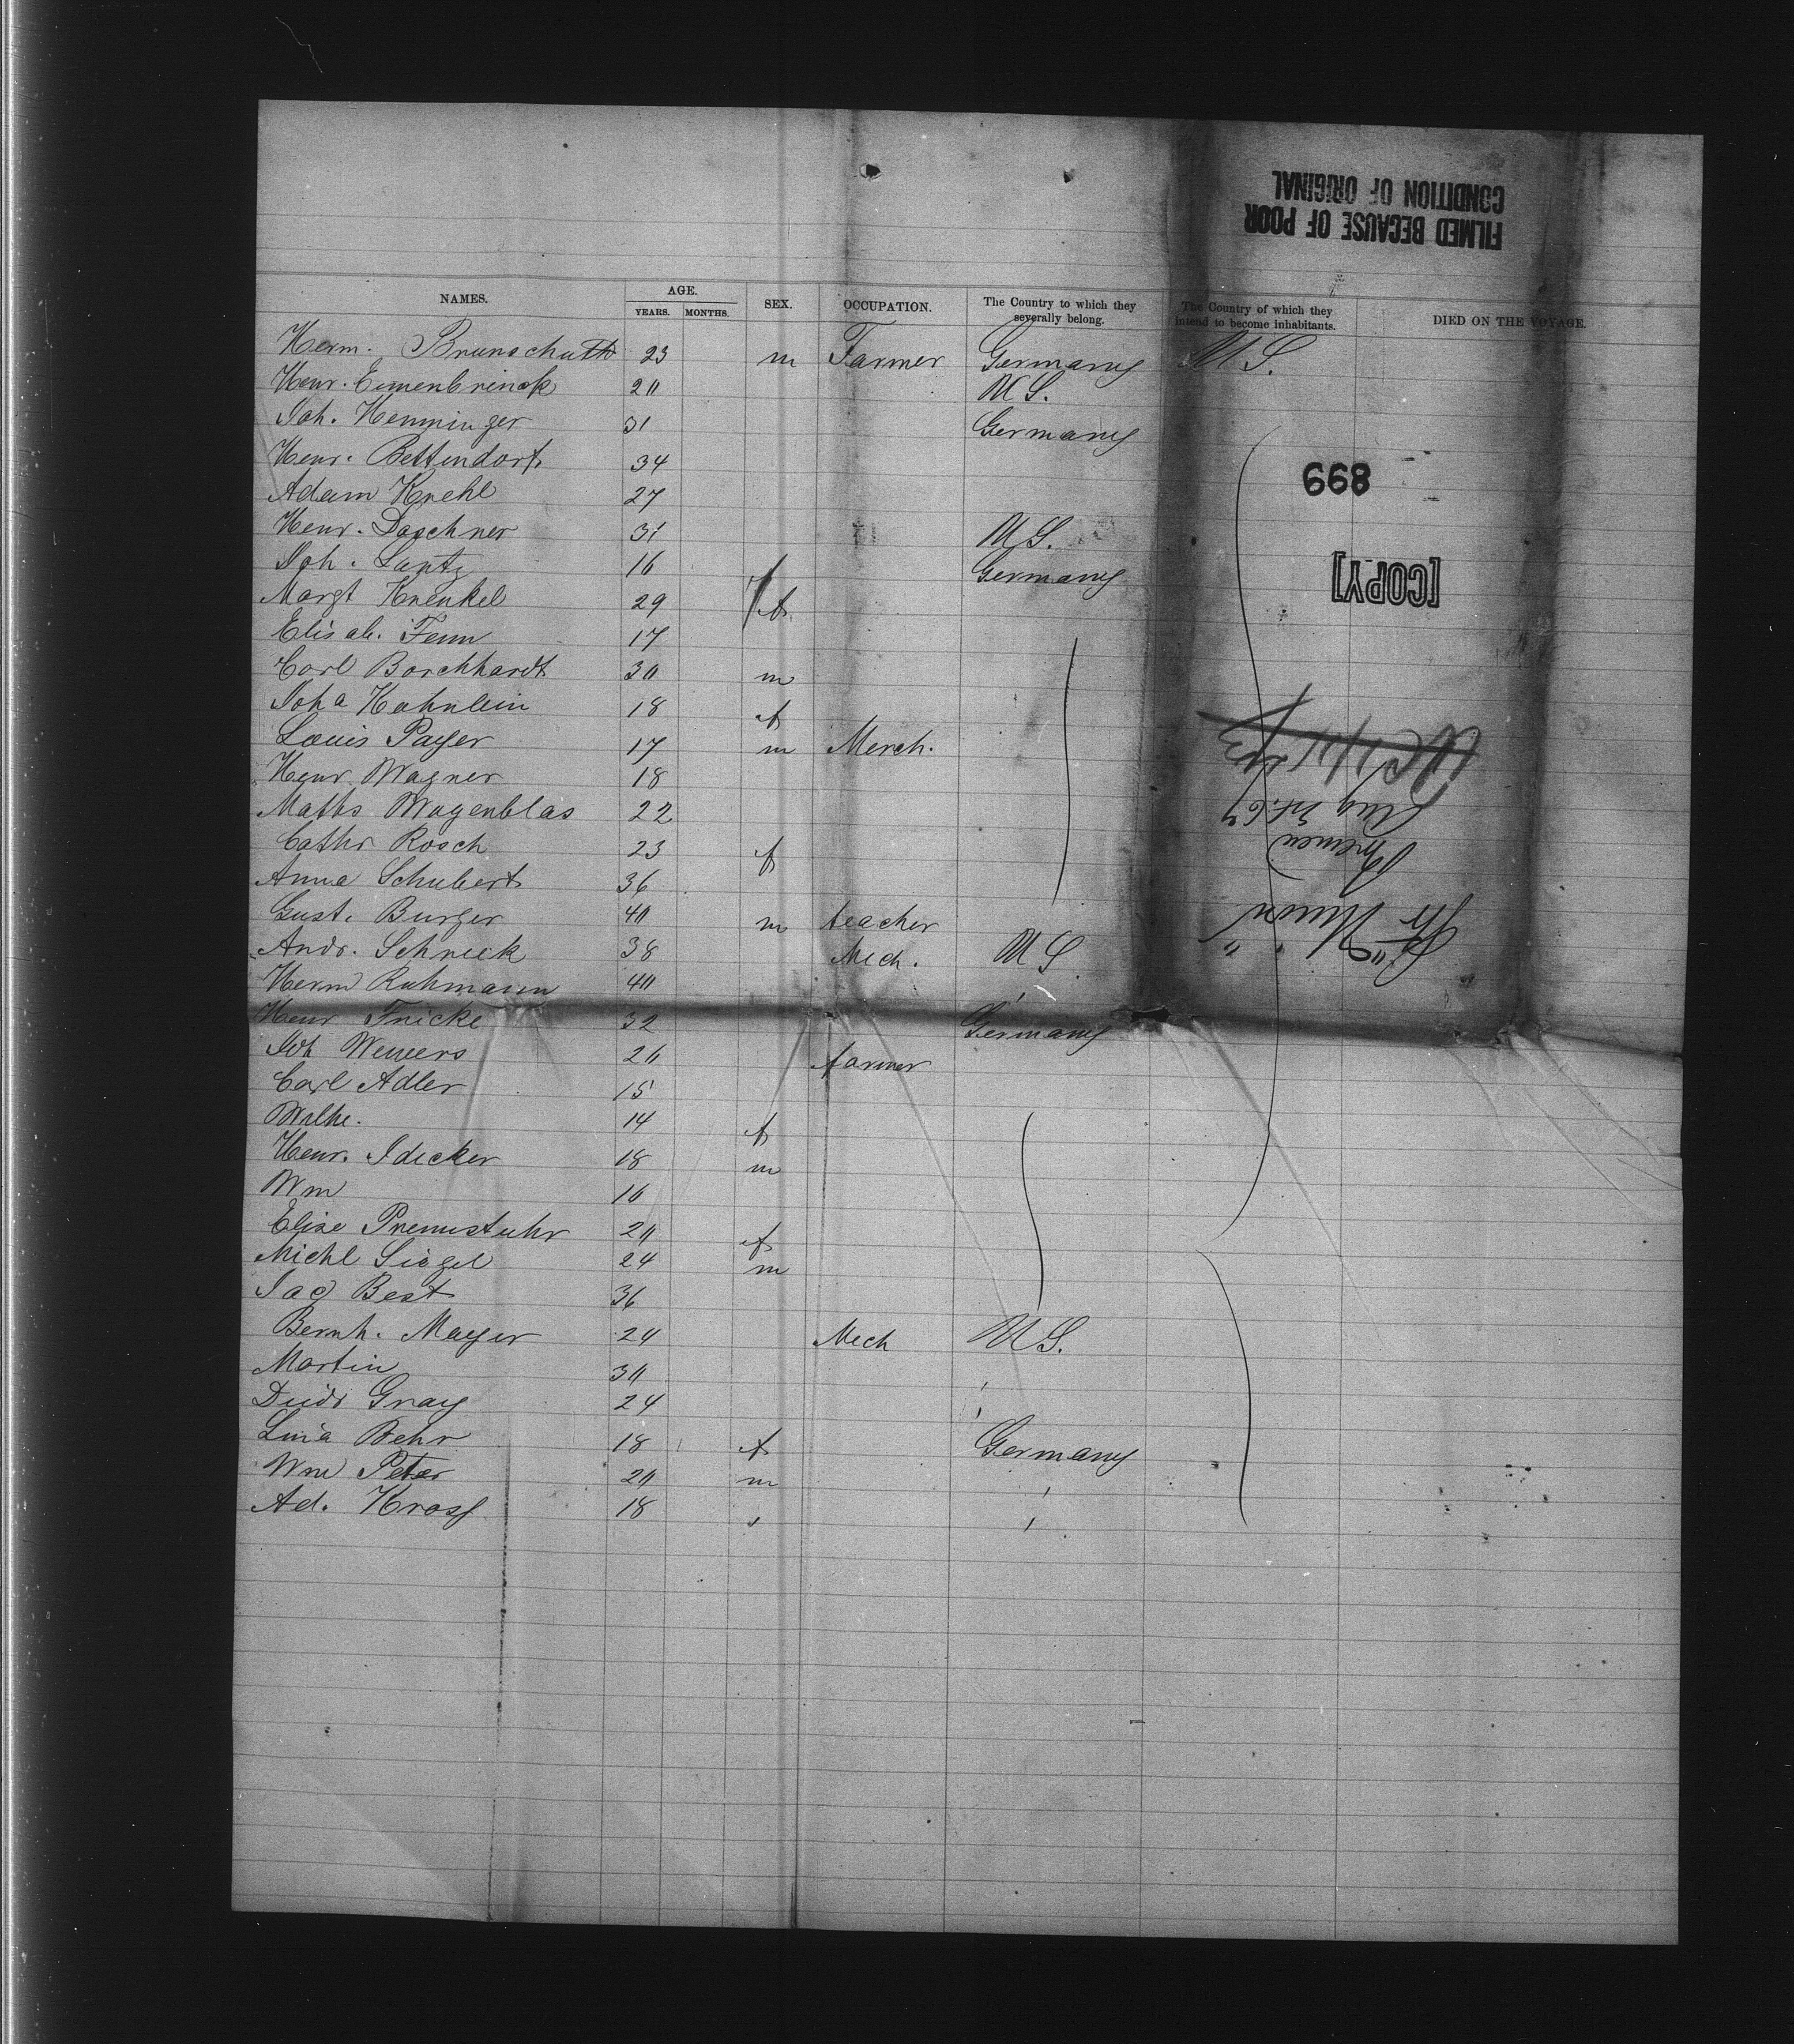 FILMED BECAUSE OF POOR
CONDITION OF ORIGINAL
NAMES. AGE. YEARS. MONTHS. SEX. OCCUPATION. The Country to which they severally belong. The Country of which they intend to become inhabitants. DIED ON THE VOYAGE.
Herm. Brunschuth 23 m Farmer Germany U S.
Henr. Eumenbrinck 20 U S.
Joh. Henninger 31 Germany
Henr. Bettendorf 34
Adam Knehl 27
Henr. Daschner 31 U S.
Joh. Lantz 16 Germany
Margt Krenkel 29 f
Elisab. Fenn 17
Carl Borchhardt 30 m
Joha Hahnlein 18 f
Louis Payer 17 m Merch.
Henr. Wagner 18
Maths Wagenblas 22
Cathr Rosch 23 f
Anna Schubert 36
Gust. Burger 40 m teacher
Andr. Schneck 38 Mech. U S.
Herm Ruhmann 40 '
Henr Fricke 32 Germany
Joh Wewers 26 farmer
Carl Adler 15
Wilhe. 14 f
Henr. Idecker 18 m
Wm 16
Elise 20 f
Michl Siegel 24 m
Jac Best 36
Bernh. Mayer 24 Mech U S.
Martin 30 '
Gray 24 '
Lina Behr 18 f Germany
Wm Peter 20 m '
Ad. Kross 18 ' '
668
[COPY]
Str "Union"
Bremen
Aug 67